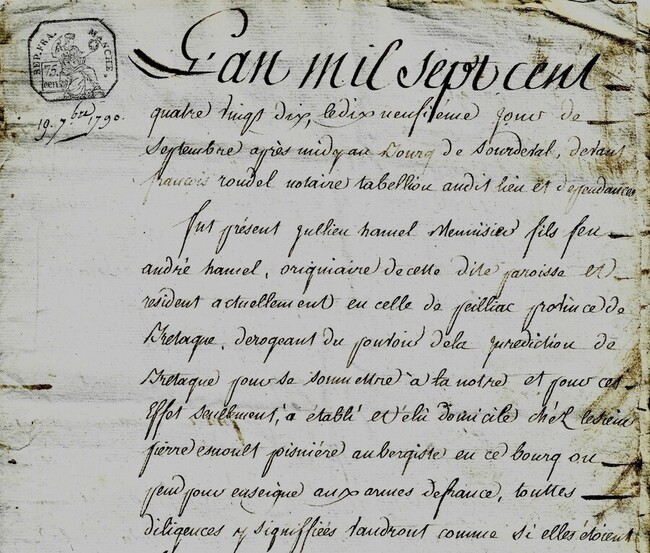 REP. FRA. MANCHE.
75 cen
19. 7bre 1790.
L'an mil sept cent
quatre vingt dix, le dix neufième jour de
Septembre après midy au bourg de Sourdeval, devant
françois roudel notaire tabellion audit lieu et dependances
fut présent jullien hamel Menuisier fils feu
andré hamel, originaire de cette dite paroisse et
resident actuellement en celle de peilliac province de
Bretaque, derogeant du pouvoir de la jurediction de
Bretaque pour se sommettre à la notre et pour cet
Effet seulement, a établi et élu domicile chéz le sieur
pierre esnoult pisnière aubergiste en ce bourg ou
pend pour enseigne aux armes de france, touttes
diligences y signiffiées tandront comme si elles étoient